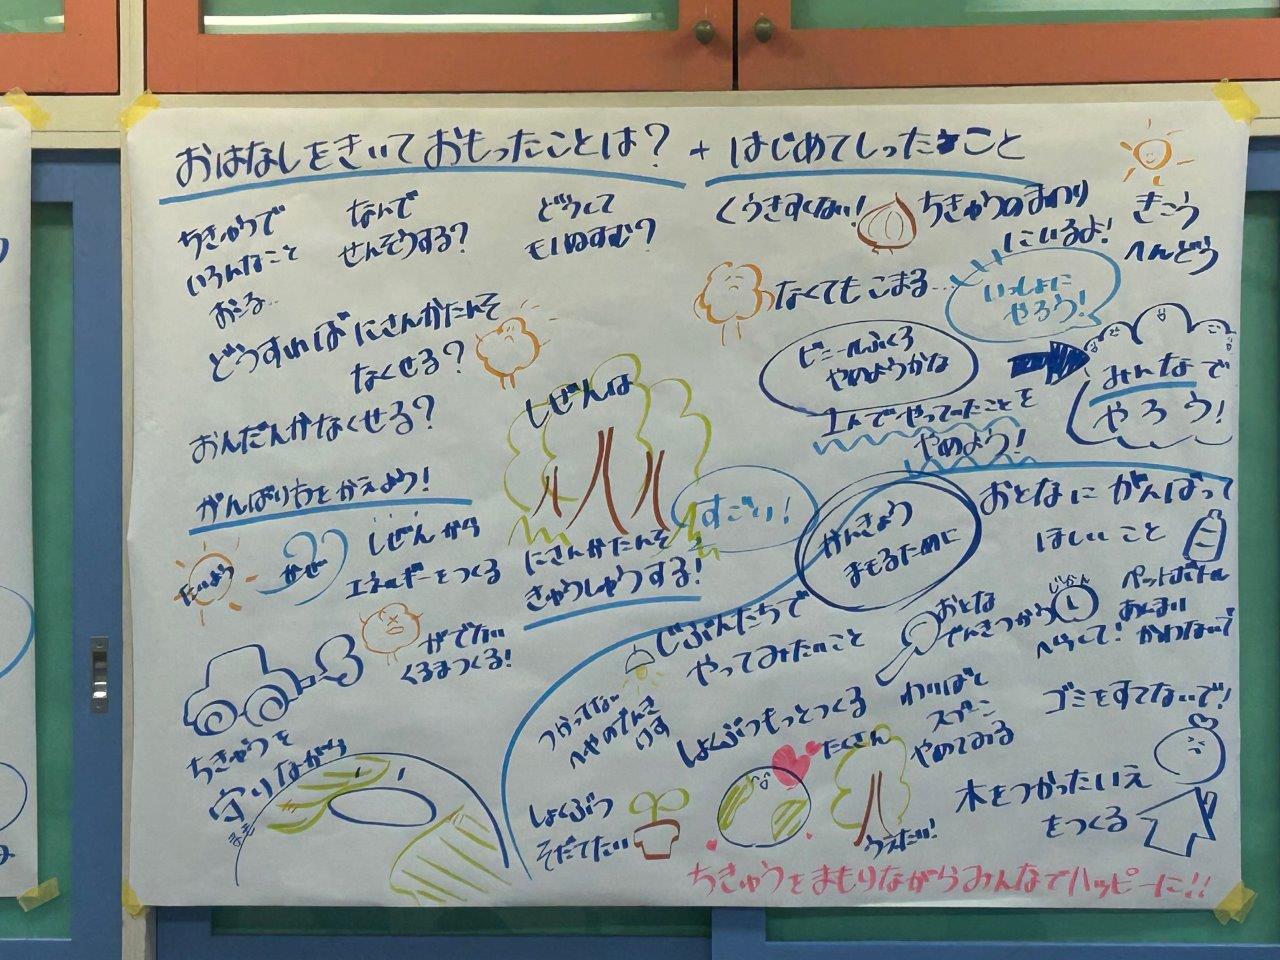 おはなしをきいておもったことは？ + はじめてしったこと
ちきゅうで
いろんなこと
おこる…
なんで
せんそうする？
どうして
ものぬすむ？
どうすれば にさんかたんそ
なくせる？
おんだんかなくせる？
がんばり方をかえよう！
たいよう
かぜ
しぜんから
エネルギーをつくる
がでない
くるまつくる！
ちきゅうを
守りながら
まも
しぜんは
すごい！
にさんかたんそ
きゅうしゅうする！
くうきすくない！
ちきゅうのまわり
にいるよ！
きこう
へんどう
なくてもこまる…
いっしょに
やろう！
ビニールふくろ
やめようかな
みんなで
やろう！
1人でやってったことを
やめよう！
かんきょう
まもるために
じぶんたちで
やってみたいこと
つかってない
へやのでんき
けす
しょくぶつもっとつくる
しょくぶつ
そだてたい
たくさん
うえたい！
おとなにがんばって
ほしいこと
おとな
でんきつかう
じかん
へらして！
ペットボトル
あんまり
かわないで
わりばし
スプーン
やめてみる
ゴミをすてないで！
木をつかったいえ
をつくる
ちきゅうをまもりながらみんなでハッピーに!!